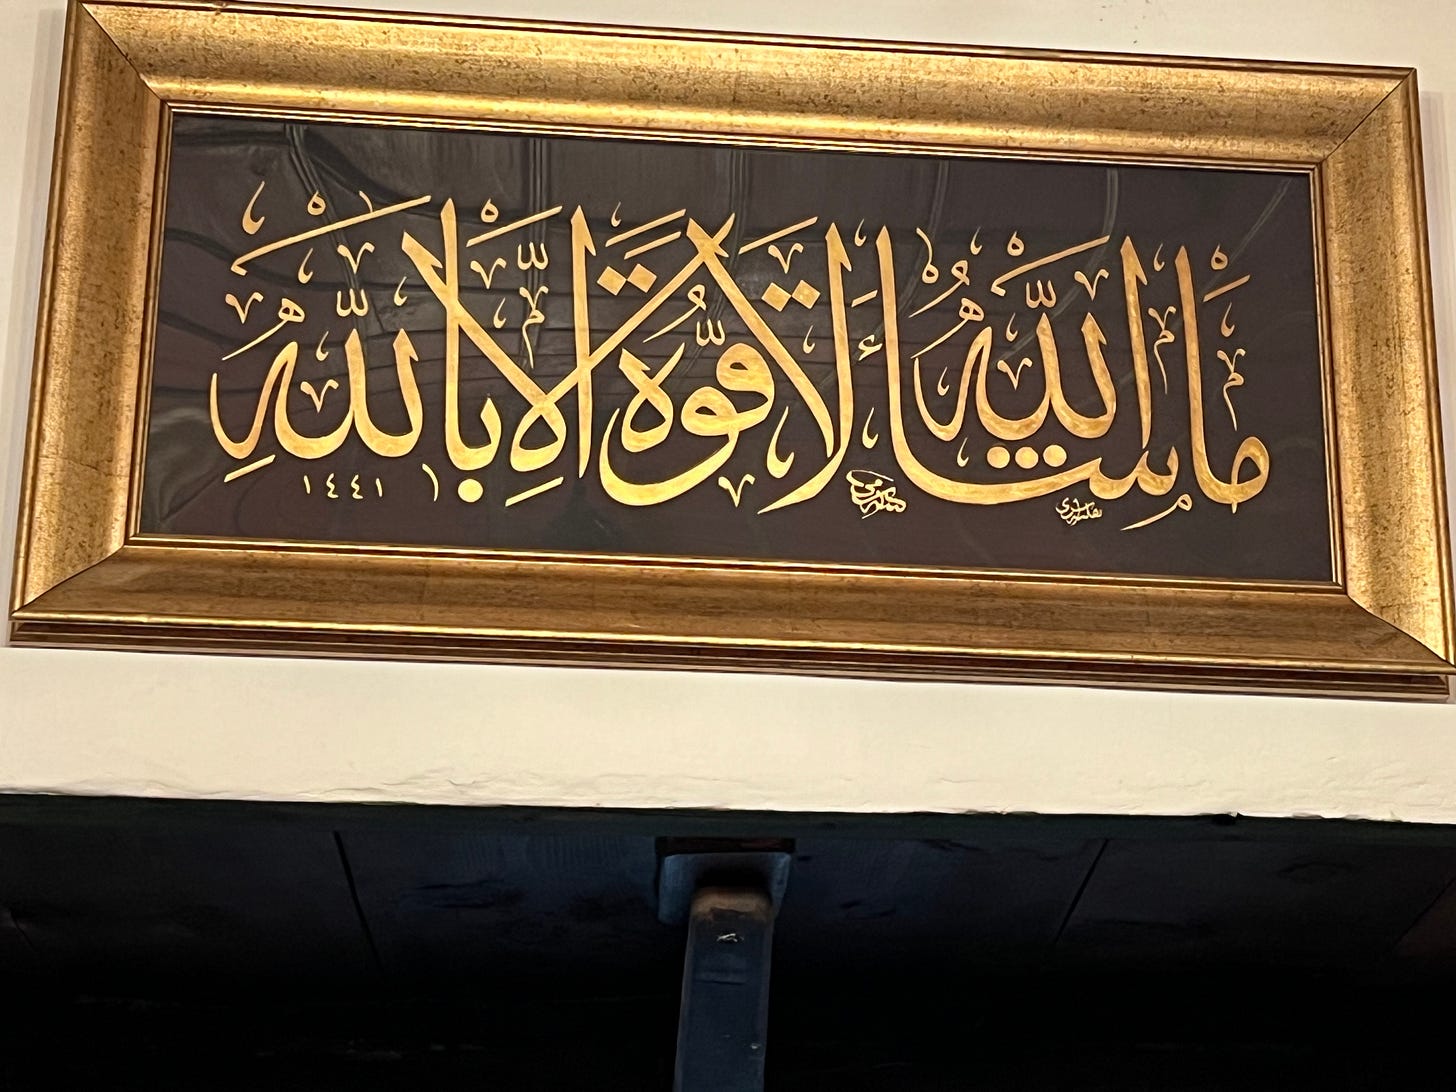 مَا شَاءَ اللّٰهُ لَا قُوَّةَ اِلَّا بِاللّٰهِ
١٤٤١